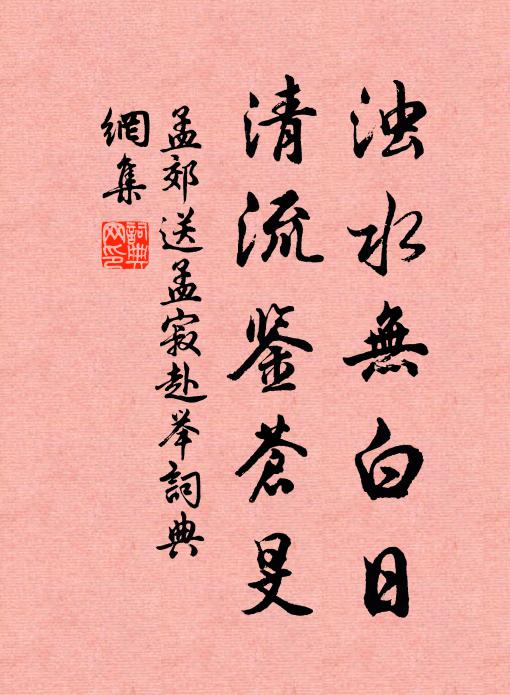 浊水無白日
清流鉴蒼旻
孟郊送孟寂赴举詞典
網集
詞典網印